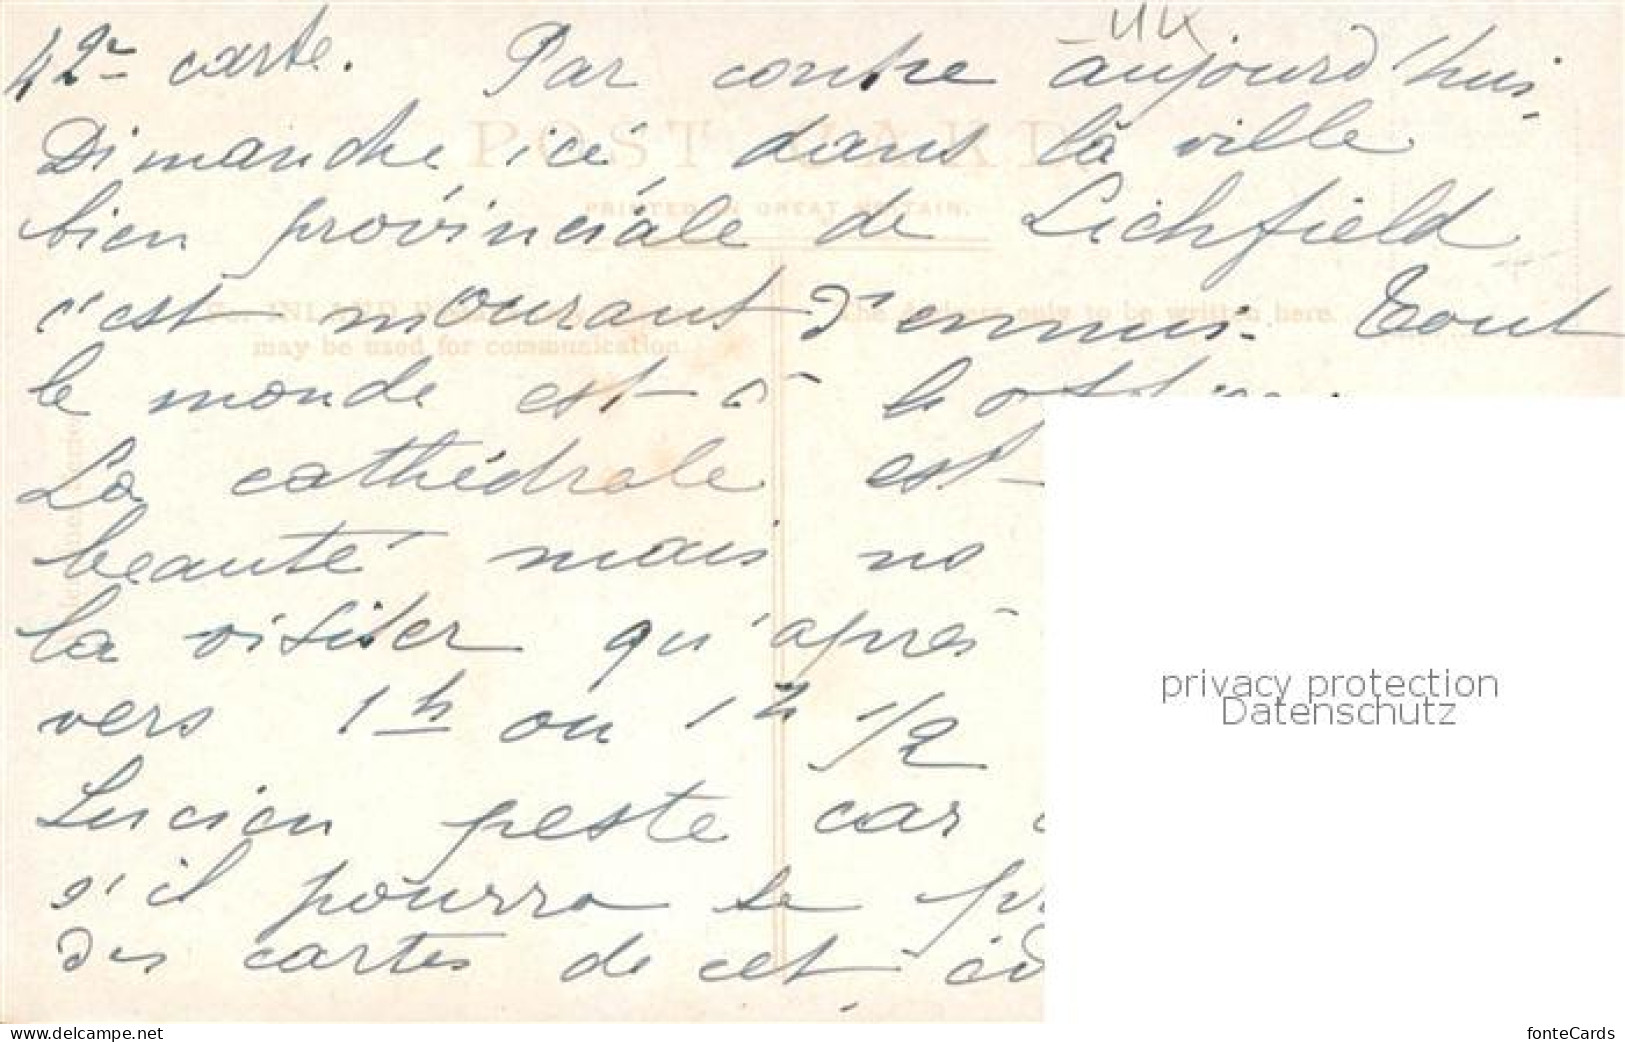 42e carte. Par contre aujourd'hui
Dimanche ici dans la ville
bien provinciale de Lichfield
c'est mourant d'ennui. Tout
le monde est à
La cathédrale est
beauté mais
la visiter qu'après
vers 1h ou 1h 1/2
Lucien peste car
s'il pourra se
des cartes de cet
POST CARD
PRINTED IN GREAT BRITAIN.
For INLAND
may be used for communication.
The Address only to be written here.
privacy protection
Datenschutz
www.delcampe.net
fonteCards